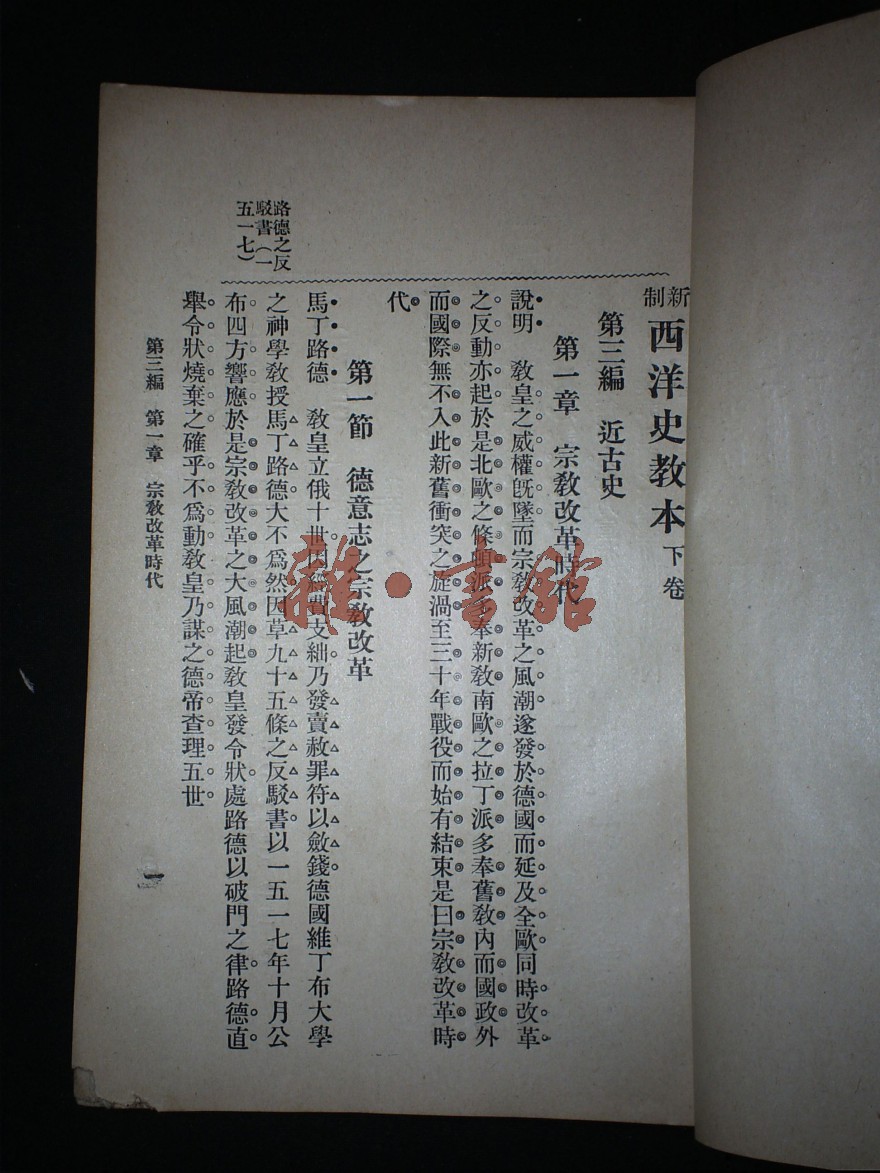 新制西洋史教本下卷
第三編　近古史
第一章　宗教改革時代
說明　教皇之威權旣墜而宗教改革之風潮遂發於德國而延及全歐同時改革
之反動亦起於是北歐之條頓派多奉新教南歐之拉丁派多奉舊教內而國政外
而國際無不入此新舊衝突之旋渦至三十年戰役而始有結束是曰宗教改革時
代
第一節　德意志之宗教改革
馬丁路德　教皇立俄十世因經費支絀乃發賣赦罪符以斂錢德國維丁布大學
之神學教授馬丁路德大不爲然因草九十五條之反駁書以一五一七年十月公
布四方響應於是宗教改革之大風潮起教皇發令狀處路德以破門之律路德直
舉令狀燒棄之確乎不爲動教皇乃謀之德帝查理五世
路德之反
駁書（一
五一七）
第三編　第一章　宗教改革時代
一
雜·書館